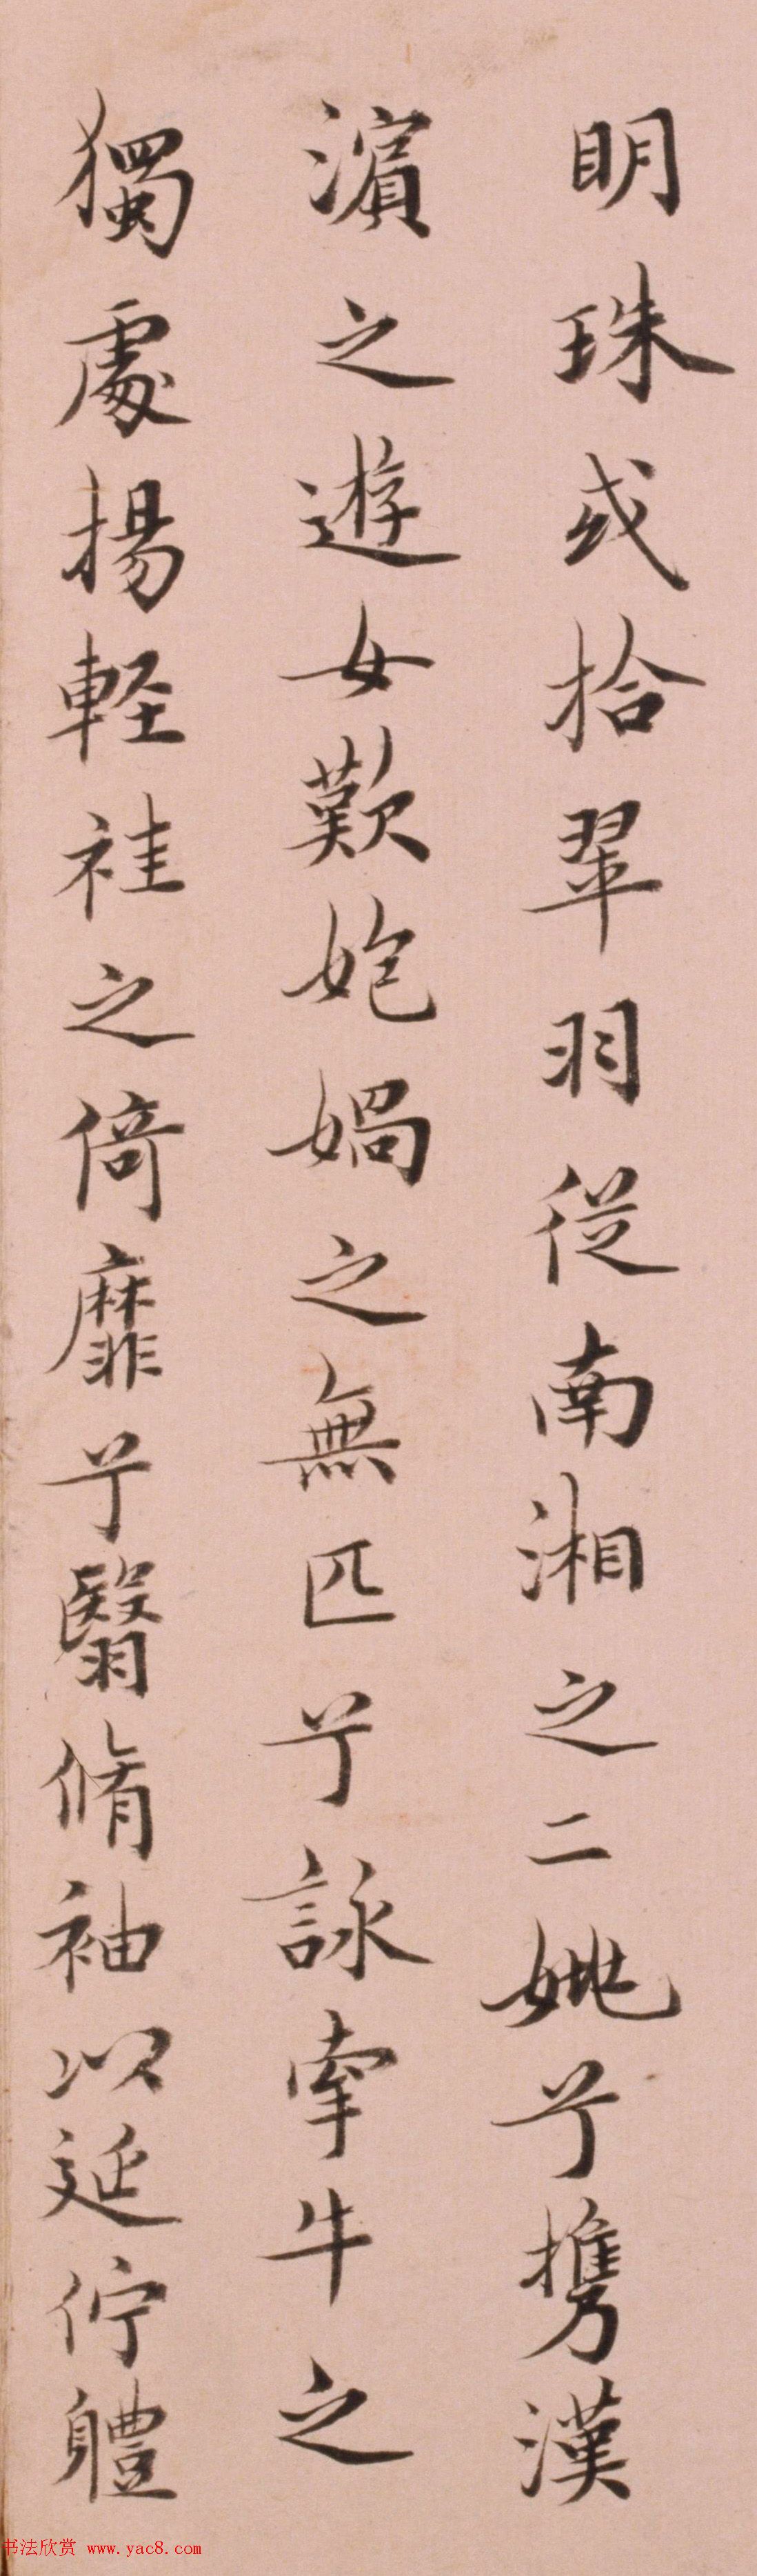 明珠或拾翠羽從南湘之二姚兮攜漢
濱之遊女歎匏媧之無匹兮詠牽牛之
獨處揚輕袿之倚靡兮翳脩袖以延佇體
书法欣赏 www.yac8.com